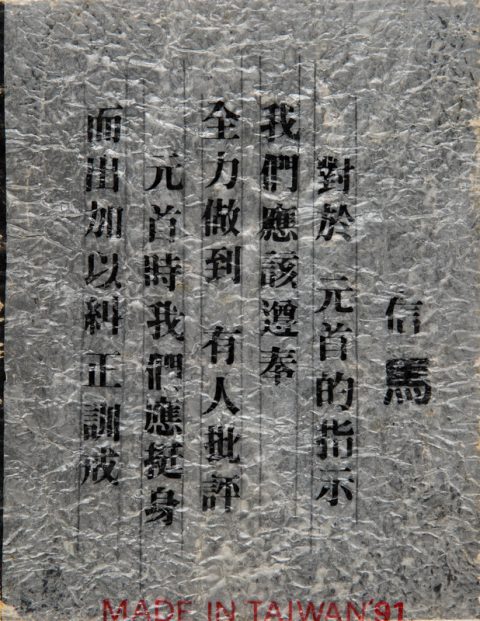 信馬
對於 元首的指示
我們應該遵奉
全力做到 有人批評
元首時我們應挺身
而出加以糾正訓戒
MADE IN TAIWAN'91